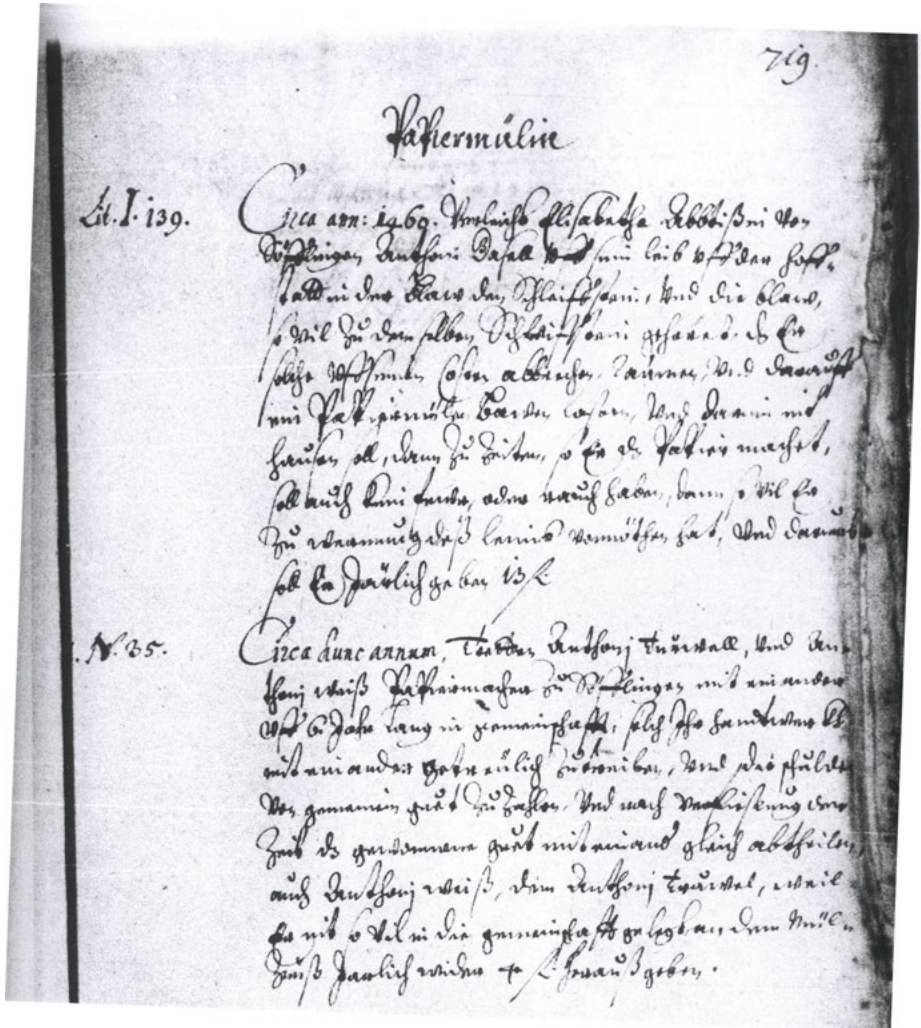 719.
Papiermülin
Lit. I. 139.
Circa ann: 1469. Verleicht Elisabetha Abbtißin von
Söfflingen Anthoni Vff sein leib vff der hoff-
statt in der Blaw den Schleiffstein, Vnd die blaw,
so vil zu dem selben Schleiffstein gehöret. dz Er
solche Vff seinen Costen abbrechen, Raumen, Vnd darauff
ein Papiermülin Bawen lassen, Vnd darein nit
hausen soll, dann zu Zeiten, so Er dz Papier machet,
soll auch kein fewr, oder rauch haben, dann so vil Er
zu wermung deß leimbs vonnöthen hat, Vnd darumb
soll Er Järlich geben 13 f.
N. 35.
Circa hunc annum, Anthonj Turwell, Vnd An-
thonj weiß Papiermacher zu Söfflingen mit einander
Vff 6. Jahr lang in gemeinschafft, solch Ihr handtwerckh
mit einander getreülich zutreiben, Vnd die schulden
Von gemeinem guet zu Zahlen, Vnd nach Verfliesung der
Zeit dz gewonnene guet mit einand' gleich abtheilen,
auch Anthonj weiß, dem Anthonj Truwel, weil
Er nit so Vil in die gemeinschafft gelegt, an dem Mül-
Zinß Järlich wider 4 f. herauß geben.